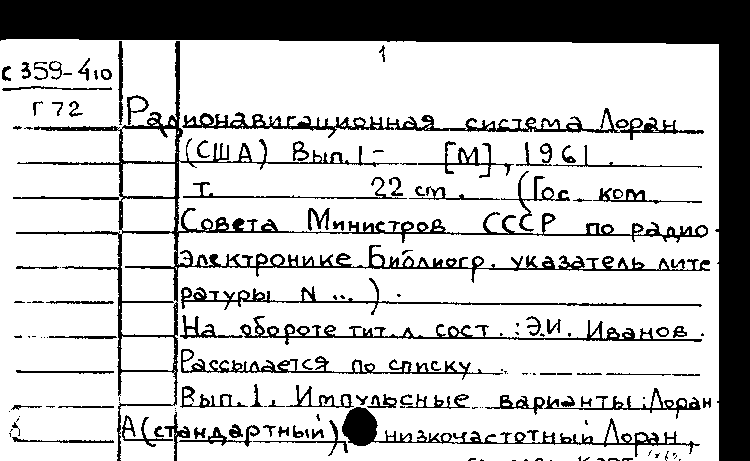 1
С 359-410
Г 72
Радионавигационная система Лоран
(США) Вып. 1- [М], 1961.
т. 22 cm. (Гос. ком.
Совета Министров СССР по радио-
электронике Библиогр. указатель лите-
ратуры N ... ).
На обороте тит. л. сост.: Э.И. Иванов.
Рассылается по списку.
Вып. 1. Импульсные варианты: Лоран-
А (стандартный), низкочастотный Лоран,